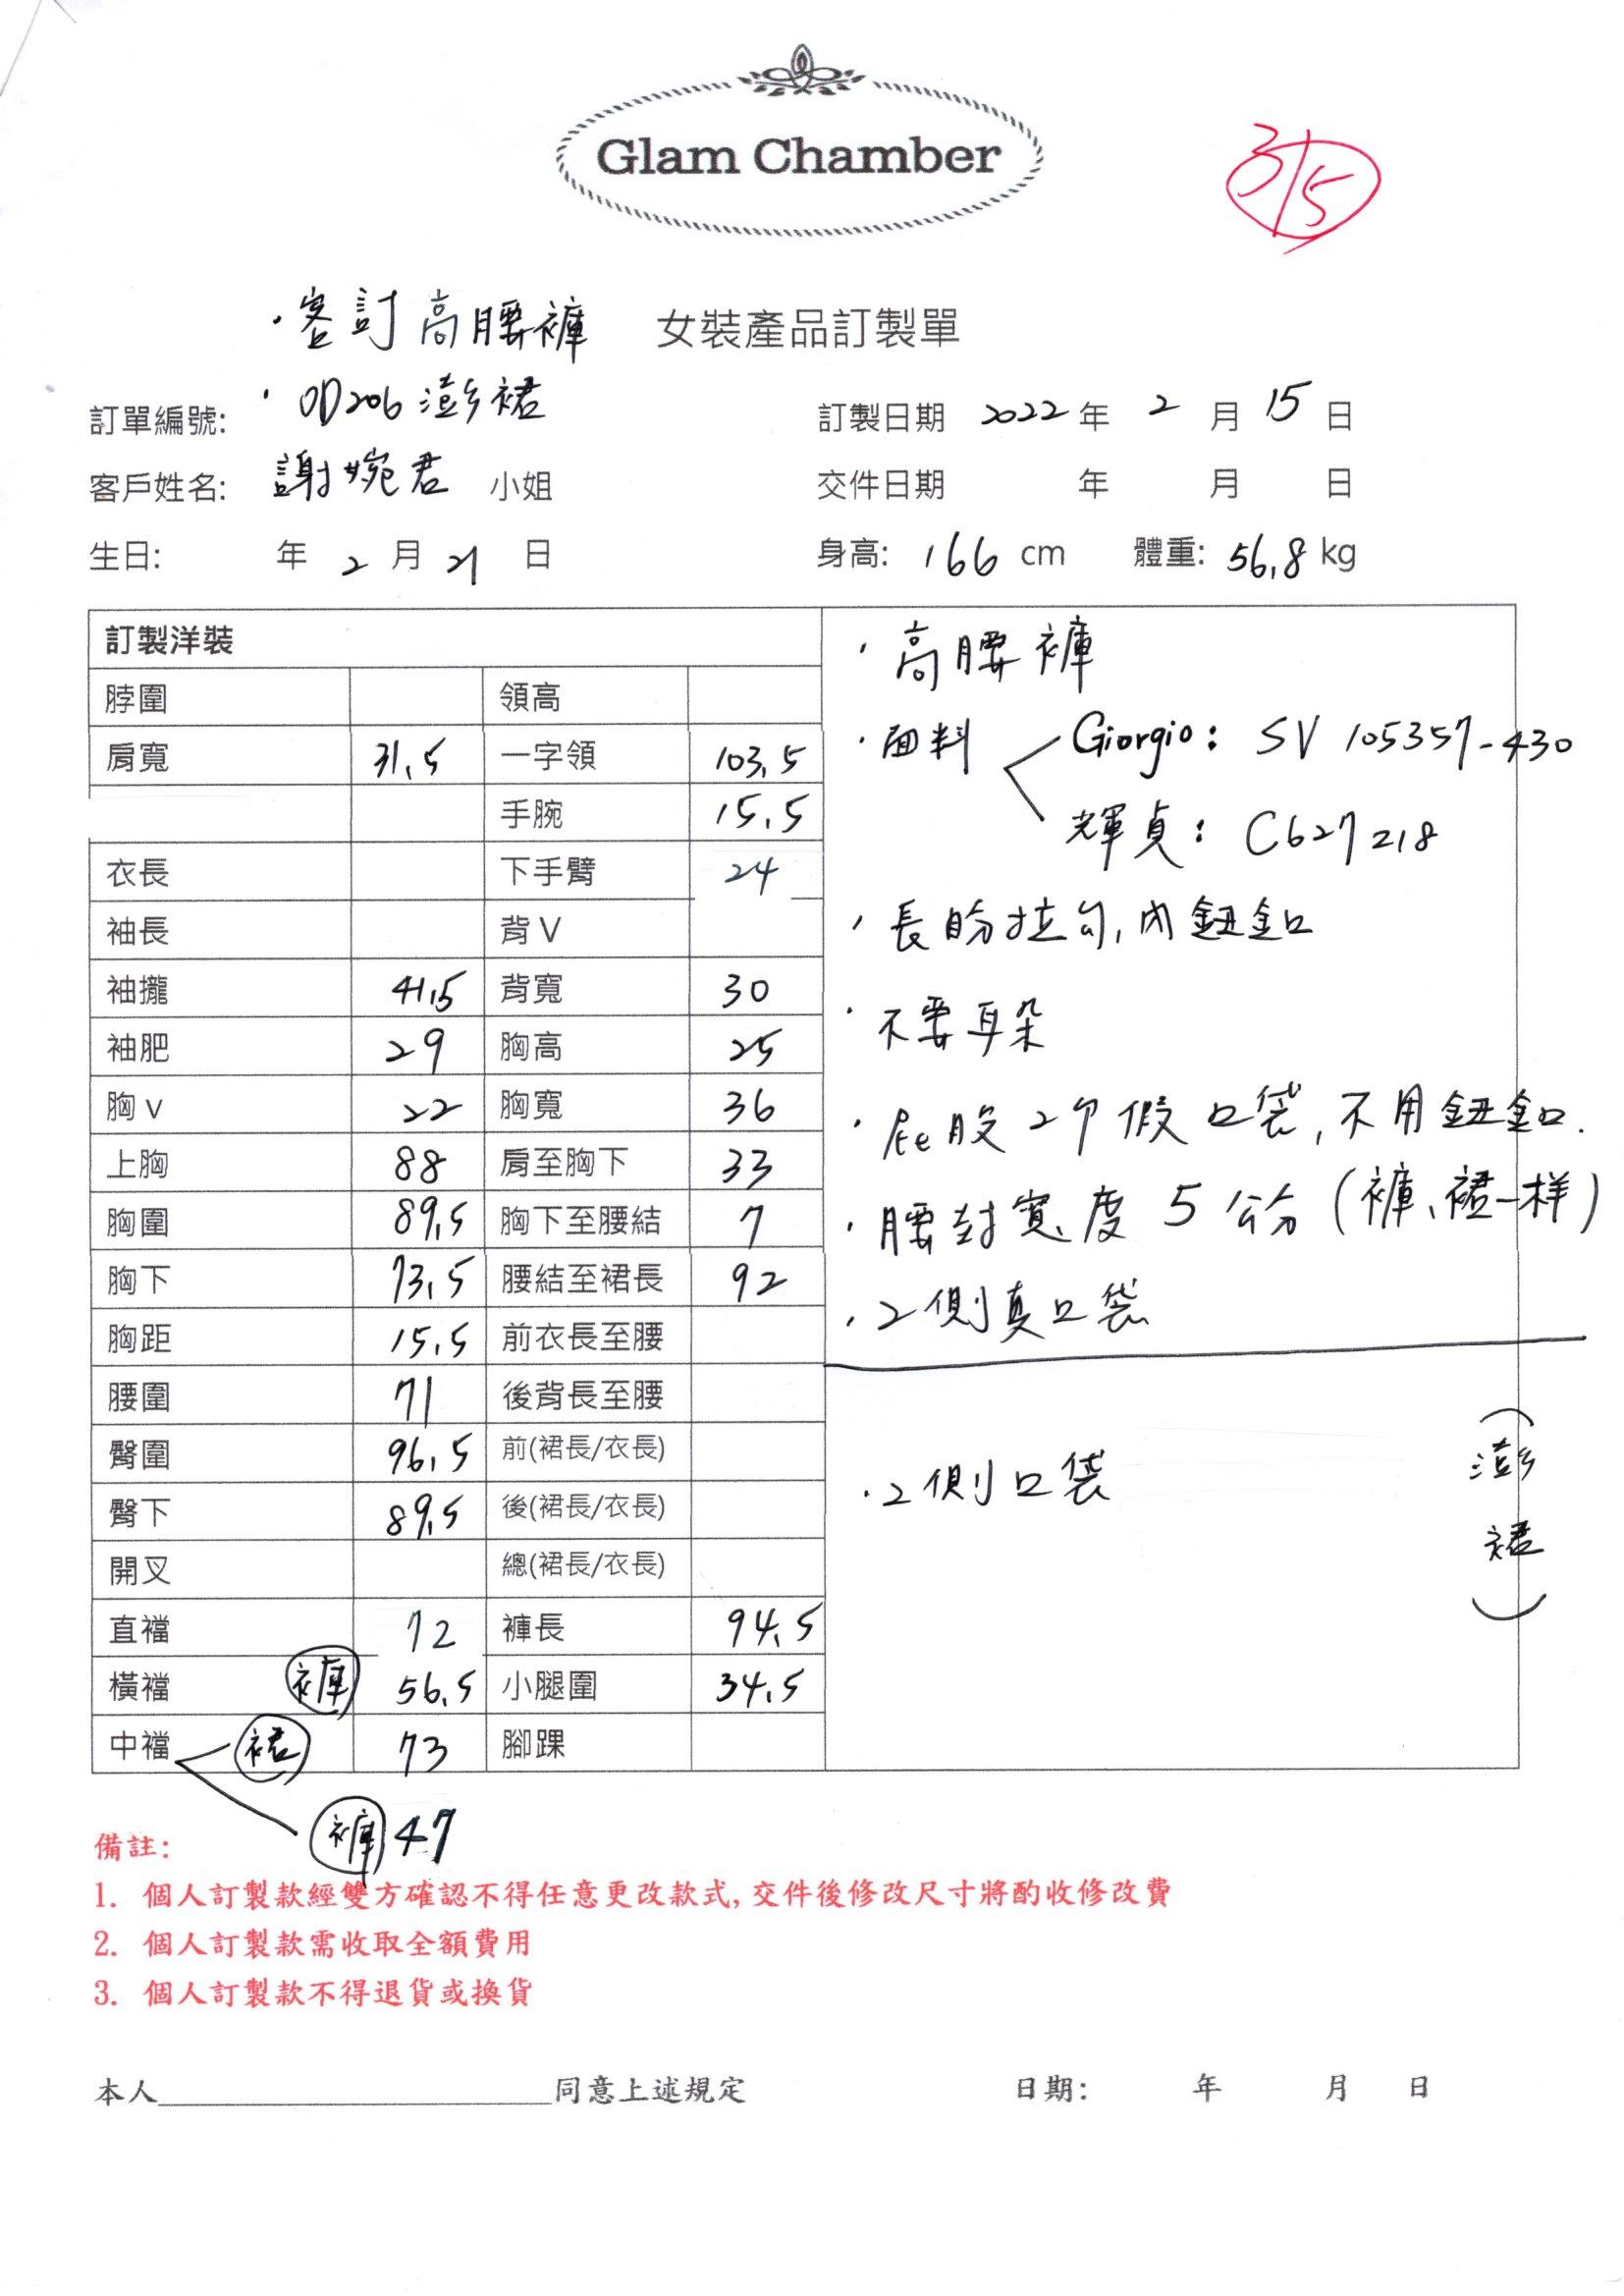 Glam Chamber
3/5
·客訂高腰褲 女裝產品訂製單
訂單編號: ·OD206澎裙 訂製日期 2022年 2月 15日
客戶姓名: 謝婉君 小姐 交件日期 年 月 日
生日: 年 2月 21日 身高: 166 cm 體重: 56.8 kg
訂製洋裝
脖圍 領高
肩寬 31.5 一字領 103.5
手腕 15.5
衣長 下手臂 24
袖長 背V
袖攏 41.5 背寬 30
袖肥 29 胸高 25
胸v 22 胸寬 36
上胸 88 肩至胸下 33
胸圍 89.5 胸下至腰結 7
胸下 73.5 腰結至裙長 92
胸距 15.5 前衣長至腰
腰圍 71 後背長至腰
臀圍 96.5 前(裙長/衣長)
臀下 89.5 後(裙長/衣長)
開叉 總(裙長/衣長)
直襠 72 褲長 94.5
橫襠 褲 56.5 小腿圍 34.5
中襠 裙 73 腳踝
褲 47
·高腰褲
·面料 Giorgio: SV 105357-430
輝貞: C627218
·長的拉勾,內鈕釦
·不要耳朵
·屁股2个假口袋,不用鈕釦.
·腰封寬度5公分(褲、裙一样)
·2側真口袋
·2側口袋
(澎裙)
備註:
1. 個人訂製款經雙方確認不得任意更改款式,交件後修改尺寸將酌收修改費
2. 個人訂製款需收取全額費用
3. 個人訂製款不得退貨或換貨
本人____________________同意上述規定 日期: 年 月 日